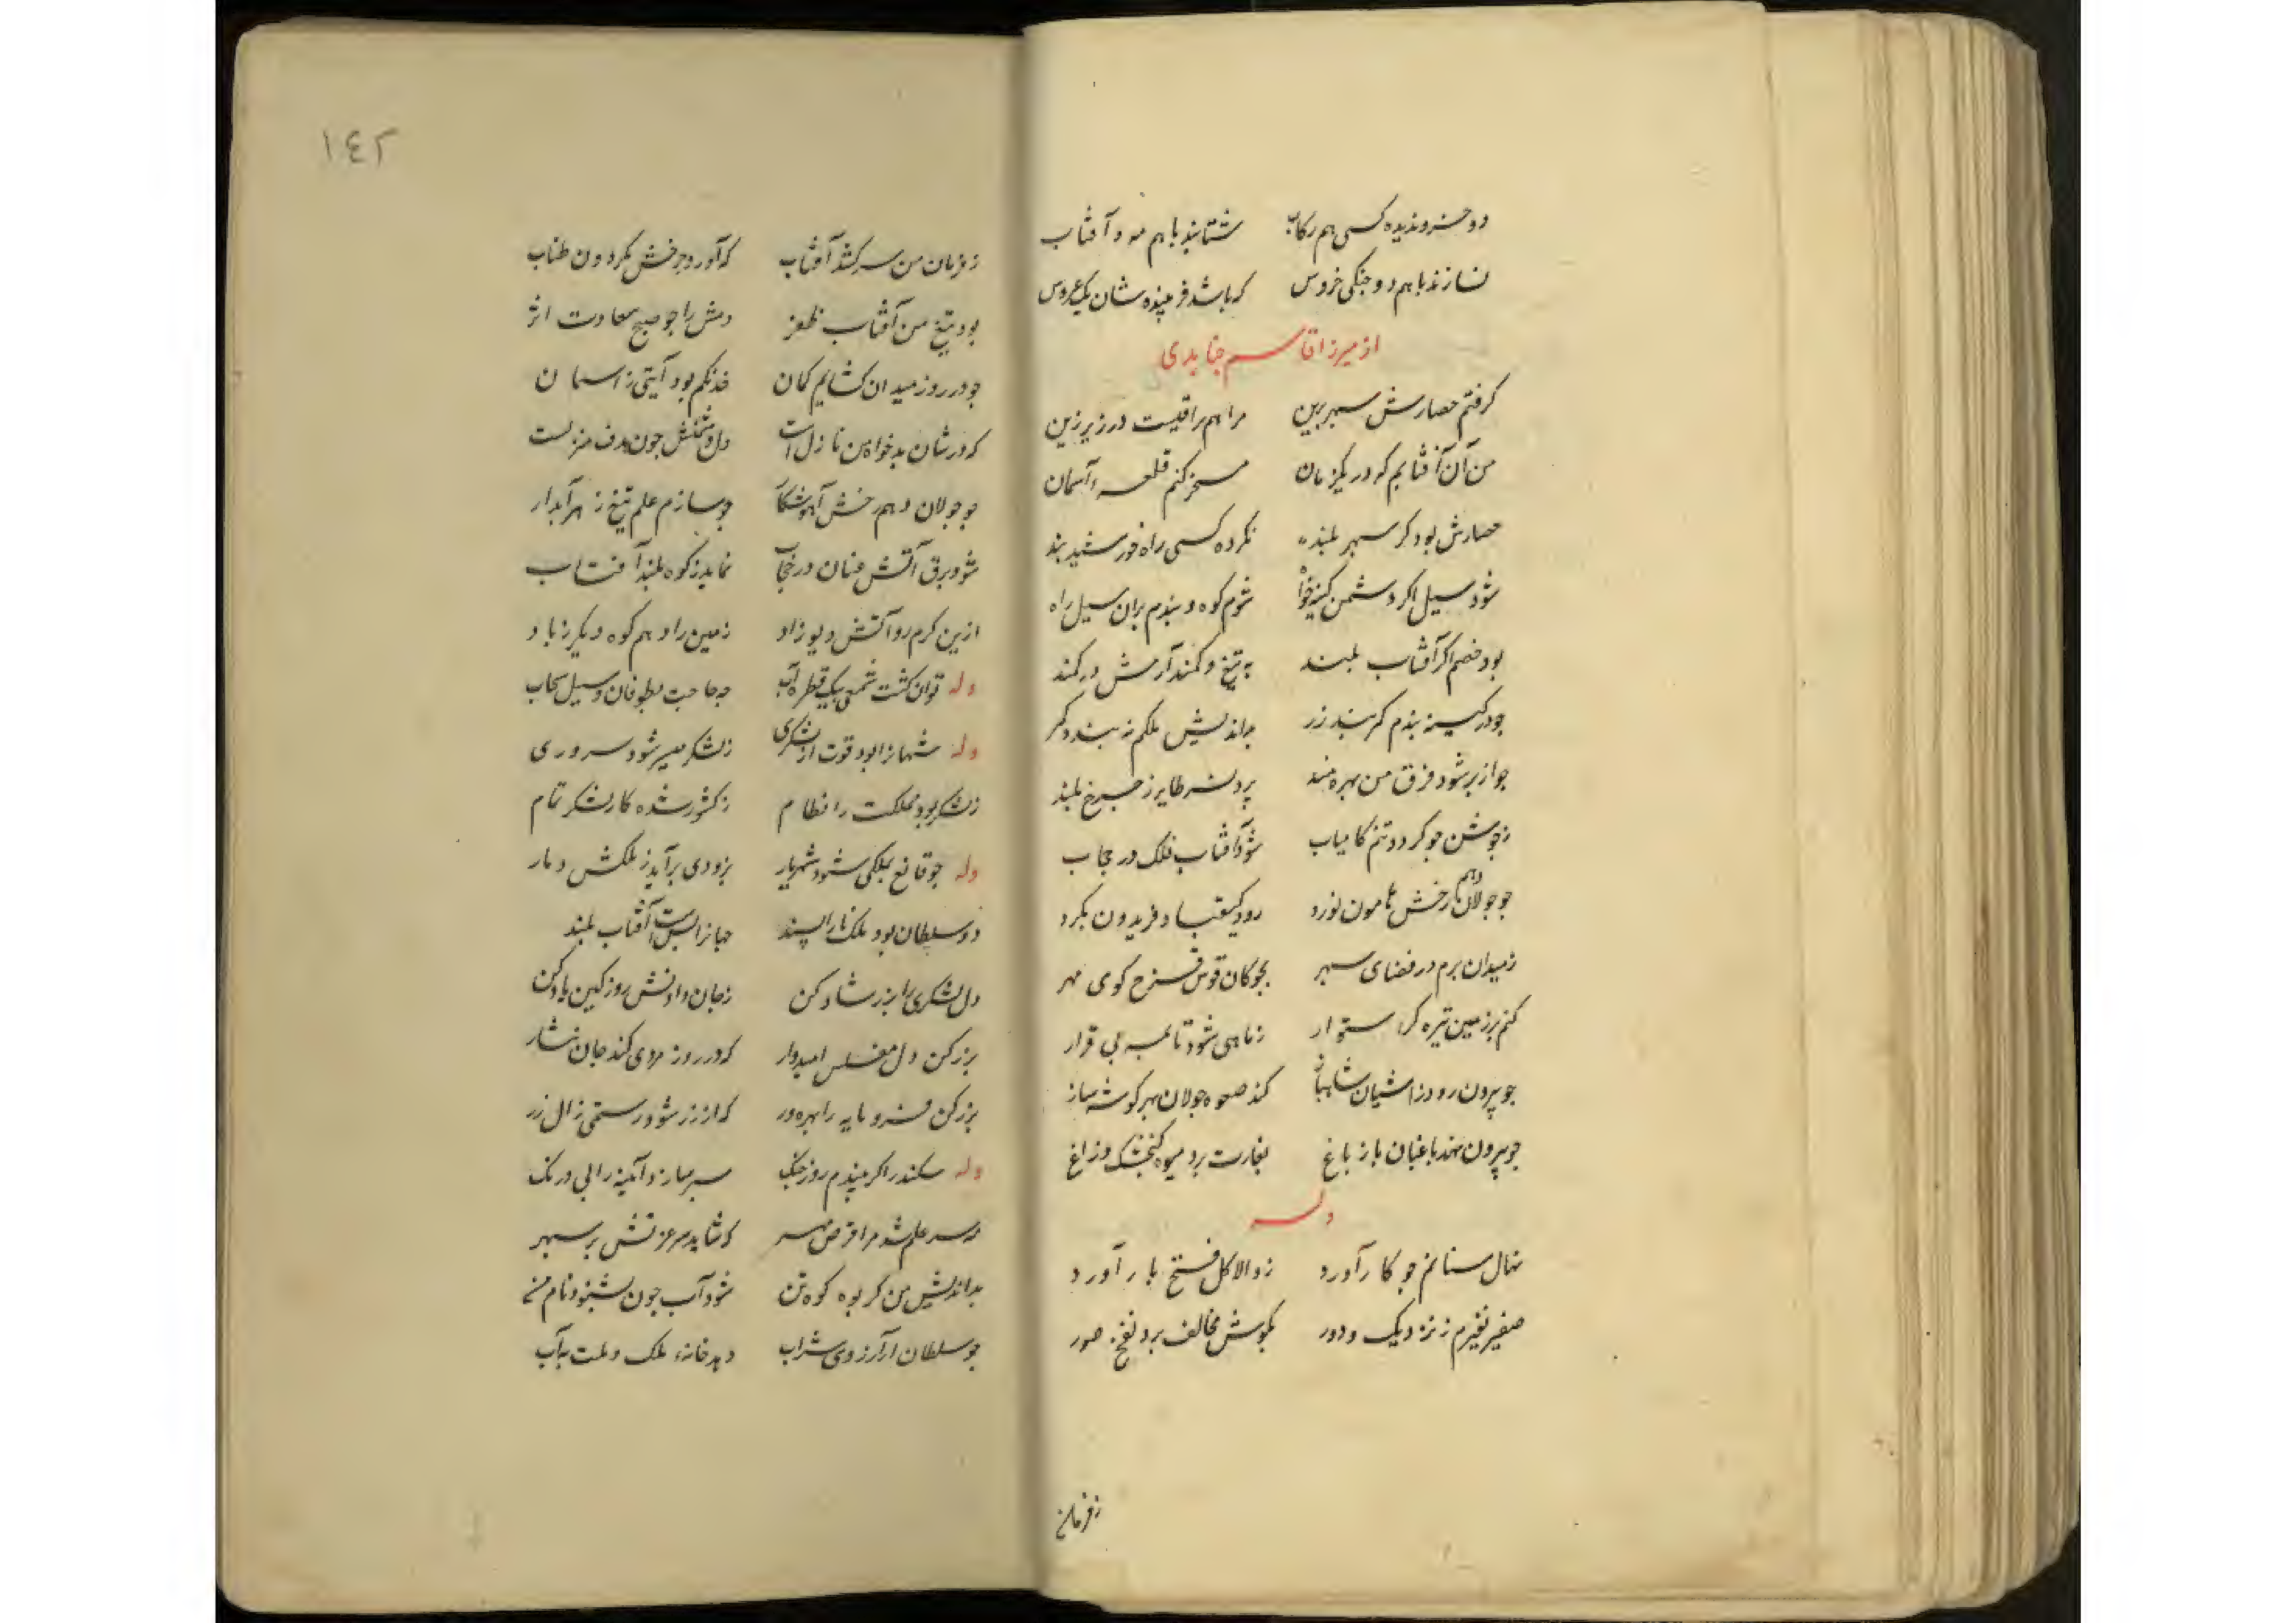 دو خسرو ندیده کسی هم رکاب شتابند با هم مه و آفتاب
نسازند با هم دو جنکی خروس که باشد فریبنده شان یک عروس
از میرزا قاسم جنابدی
کرفتم حصارش سپهر برین مرا هم براقیست در زیر زین
من آن آفتابم که در یکزمان مسخر کنم قلعهٔ آسمان
حصارش بود کر سپهر بلند نکرده کسی راه خورشید بند
شود سیل اکر دشمن کینه خواه شوم کوه و بندم بران سیل راه
بود خصم اکر آفتاب بلند به تیغ و کمند آرمش در کمند
جو در کینه بندم کمربند زر بداندیش ملکم نبندد کمر
جو از پر شود فرق من بهره مند پرد نسر طایر ز جرخ بلند
ز جوشن جو کردد تنم کامیاب شود آفتاب فلک در حجاب
جو جولان دهم رخش هامون نورد رود کیقباد و فریدون بکرد
ز میدان برم در فضای سپهر بجوکان قوس قزح کوی مهر
کنم بر زمین تیره کر استوار ز ماهی شود تا بمه بی قرار
جو بیرون رود ز اشیان شاهباز کند صعوه جولان بهر کوشه ساز
جو بیرون نهد باغبان پا ز باغ بغارت برد میوه کنجشک و زاغ
وله
نهال سنانم جو کار آورد ز والا کل فتح بار آورد
صفیر نفیرم ز نزدیک و دور بکوش مخالف برد نفخ صور
ز فرمان
١٤٢
ز فرمان من سر کشد آفتاب که آورد بر خش کردون طناب
بود تیغ من آفتاب ظفر دمش را جو صبح سعادت اثر
جو در روز میدان کشایم کمان خدنکم بود آیتی ز اسمان
که در شان بدخواه من نازل است دل دشمنش جون هدف منزلست
جو جولان دهم رخش آهو شکار جو سازم علم تیغ زهر آبدار
شود برق آتش عنان در حجاب نماید ز کوه بلند آفتاب
ازین کرم رو آتش دیو زاد زمین را دهم کوه دیکر ز باد
وله توان کشت شمعی بیک قطره آب جه حاجت بطوفان و سیل سحاب
وله شهانرا بود قوت از لشکری ز لشکر میسر شود سروری
ز لشکر بود مملکت را نظام ز کشور شده کار لشکر تمام
وله جو قانع بملکی شود شهریار بزودی برآید ز ملکش دمار
دو سلطان بود ملک را ناپسند جهانرا بس است آفتاب بلند
دل لشکری را بزر شاد کن ز جان دادنش روز کین یاد کن
بزر کن دل مفلس امیدوار که در روز مردی کند جان نثار
بزر کن فرومایه را بهره ور که از زر شود رستمی زال زر
وله سکندر اکر بیندم روز جنک سپر سازد آئینه را بی درنک
سر علم شد مرا قرص مهر که شاید سر عزتش بر سپهر
بداندیش من کر بود کوه تن شود آب جون بشنود نام من
جو سلطان ار آرزوی شراب دهد خانهٔ ملک و ملت بآب